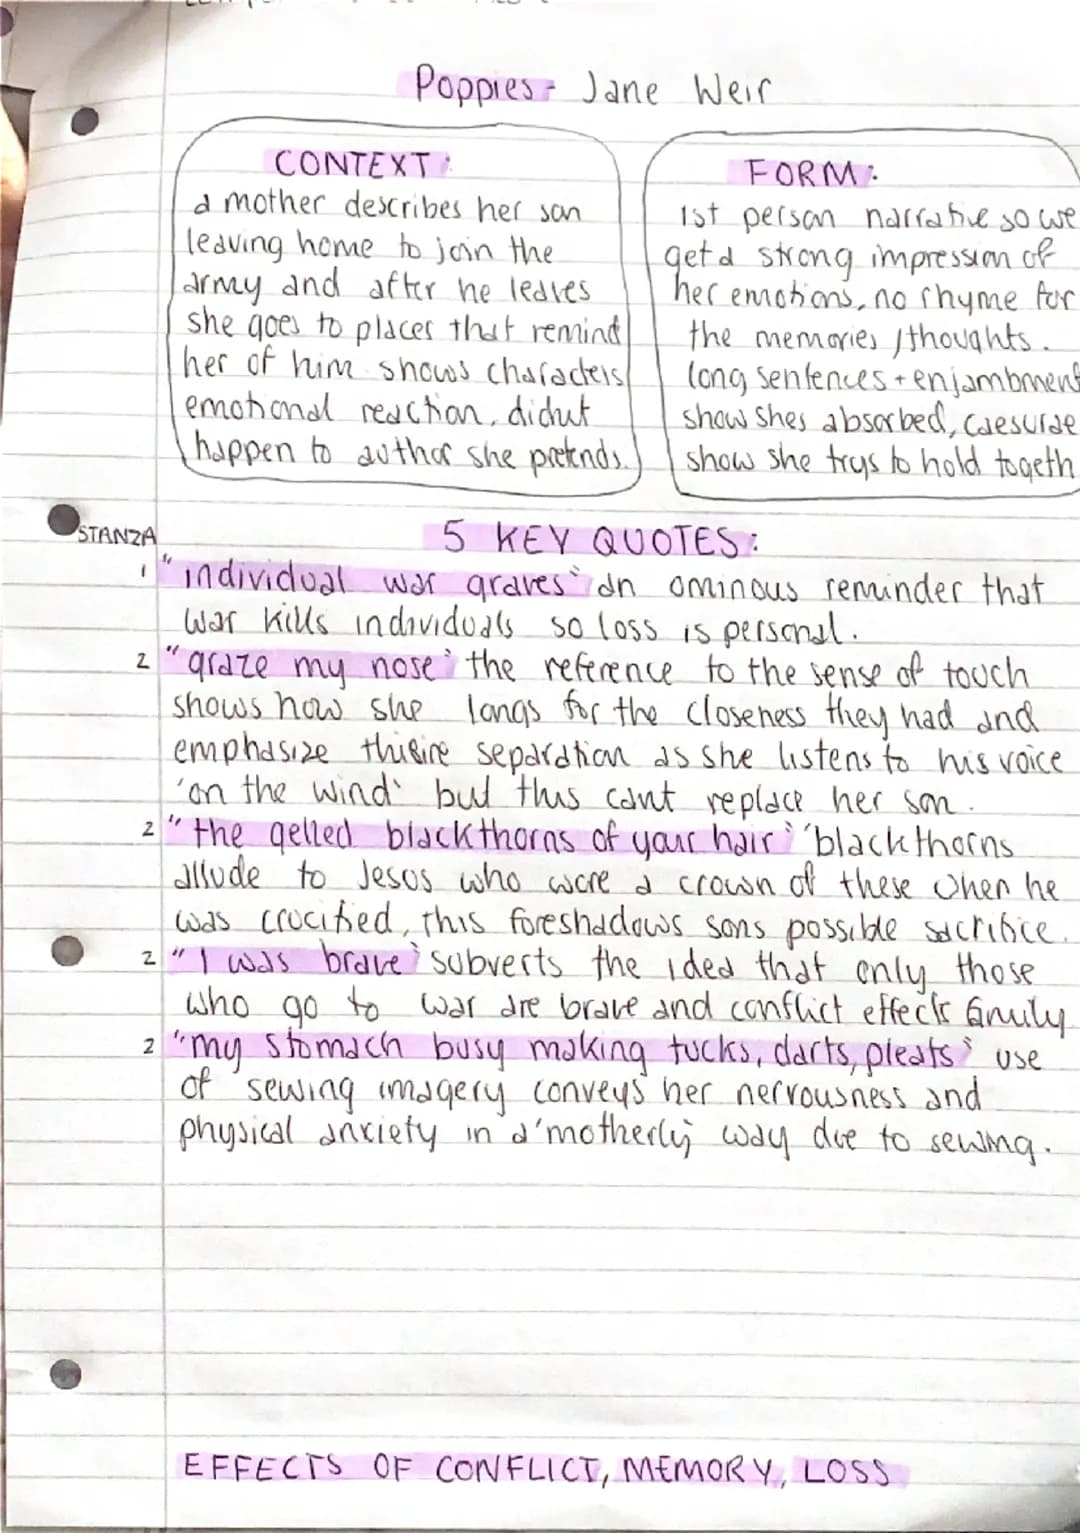 Poppies - Jane Weir
CONTEXT:
a mother describes her son
leaving home to join the
army and after he leaves
she goes to places that remind
her of him shows characters
emotional reaction, didnt
happen to author she pretends.
FORM:
1st person narrative so we
get a strong impression of
her emotions, no rhyme for
the memories / thoughts.
long sentences + enjambment
show shes absorbed, caesurae
show she trys to hold togeth
STANZA
5 KEY QUOTES:
1 "individual war graves" an ominous reminder that
war kills individuals so loss is personal.
2 "graze my nose" the reference to the sense of touch
shows how she longs for the closeness they had and
emphasize separation as she listens to his voice
'on the wind' but this cant replace her son.
2 "the gelled blackthorns of your hair" 'blackthorns
allude to Jesus who wore a crown of these when he
was crucified, this foreshadows sons possible sacrifice.
2 "I was brave" subverts the idea that only those
who go to war are brave and conflict effects family
2 "my stomach busy making tucks, darts, pleats" use
of sewing imagery conveys her nervousness and
physical anxiety in a 'motherly' way due to sewing.
EFFECTS OF CONFLICT, MEMORY, LOSS